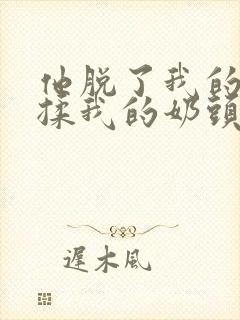 他脱了我的
揉我的奶頭
遲木風